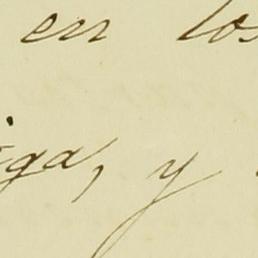 en los
ga, y